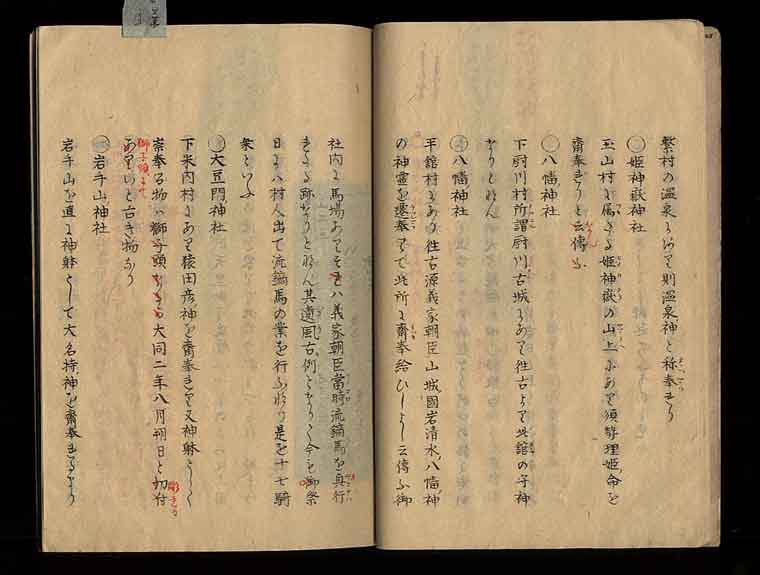 繋村の温泉にあり則温泉神と称奉まつる
○姫神嶽神社
玉山村に属する姫神嶽の山上にあり須勢理姫命を
齋奉るよし云傳ふ
○八幡神社
下厨川村所謂厨川古城にあり往古より此舘の守神
なりとなん
○八幡神社
平舘村にあり往古源義家朝臣山城國岩清水八幡神
の神靈を遷奉て此所に齋奉給ひしよし云傳ふ御
社内に馬場ありそは義家朝臣當時流鏑馬を真行
きる跡なりとなん其遺風古例となりて今も御祭
日には村人出て流鏑馬の業を行ふなり是を十七騎
衆といふ
○大豆門神社
下米内村にあり猿田彦神を齋奉るなり又神躰として
崇奉る物は獅子頭なり大同二年八月朔日と切付
獅子頭にて
彫きる
ありいと古き物なり
○岩手山神社
岩手山を直に神躰として大名持神を齋奉るなり